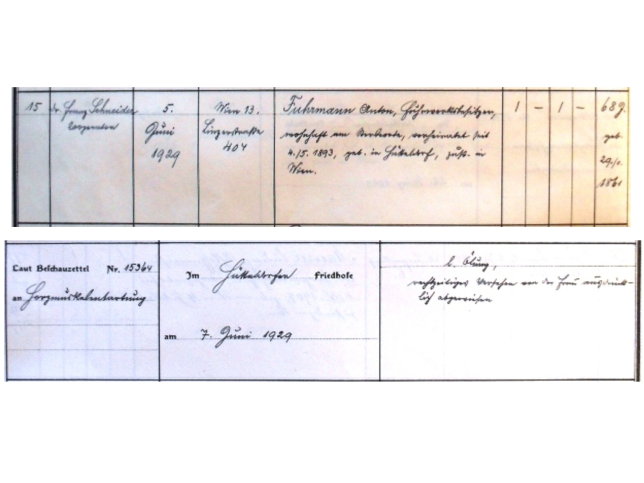 15
Dr. Franz Schneider
Cooperator
5.
Juni
1929
Wien 13.
Linzerstraße
404
Fuhrmann Anton, Fuhrwerksbesitzer,
wohnhaft am Sterbeorte, verheiratet seit
4./5. 1893, geb. in Hütteldorf, zust. in
Wien.
1 - 1 -
68 J.
geb.
1861
Laut Beschauzettel Nr. 15364
an Herzmuskelentartung
Im Hütteldorfer Friedhofe
am 7. Juni 1929
l. Ölung,
rechtzeitiges Versehen von der Frau ausdrück-
lich abgewiesen